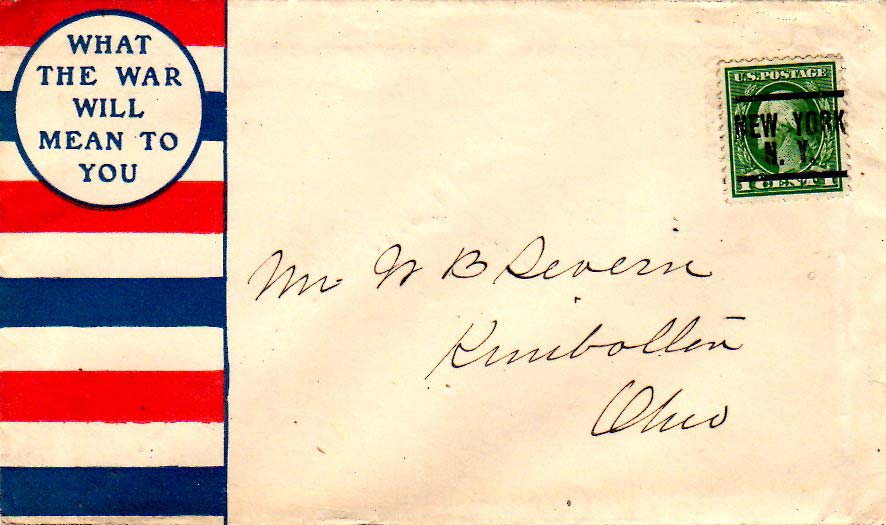 WHAT
THE WAR
WILL
MEAN TO
YOU
U.S. POSTAGE
NEW YORK
N. Y.
1 CENT 1
Mr W B Severn
Kimbolton
Ohio